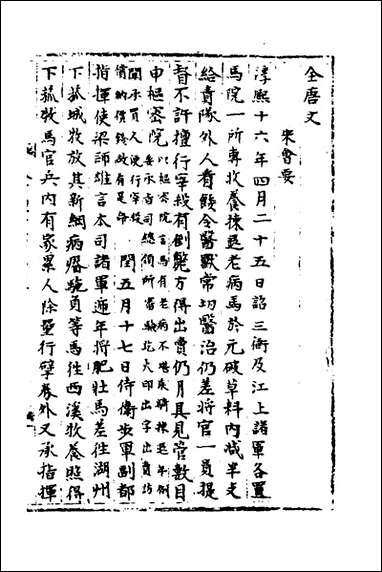 全唐文
宋會要
淳熙十六年四月二十五日詔三衙及江上諸軍各置
馬院一所專收養揀退老病馬於元破草料內減半支
給責隊外人看餧令醫獸常切醫治仍差將官一員提
督不許擅行宰殺有倒斃方得出賣仍月具見管數目
申樞密院
以樞密院言馬有老病不堪乘騎揀退年例
閏五月十七日侍衛步軍副都
指揮使梁師雄言本司諸軍遞年將肥壯馬差往湖州
下菰城牧放其新綱病瘠羸負等馬往西溪牧養照得
下菰牧馬官兵內有家累人除量行孽券外又承指揮